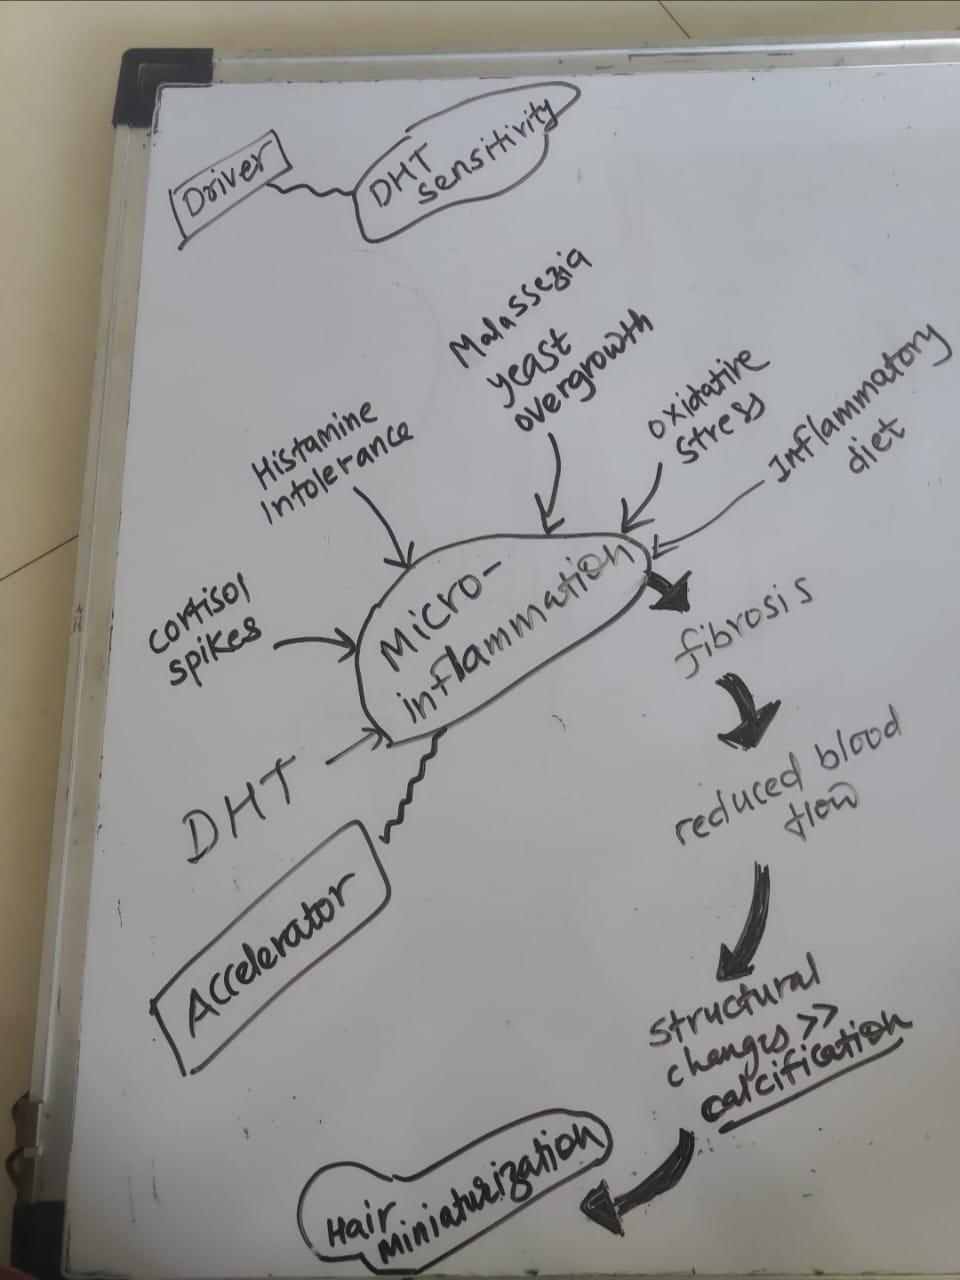 Driver
DHT
sensitivity
Malassezia
yeast
overgrowth
Histamine
Intolerance
oxidative
stress
Inflammatory
diet
cortisol
spikes
Micro-
inflammation
DHT
Accelerator
fibrosis
reduced blood
flow
structural
changes >>
calcification
Hair
Miniaturization